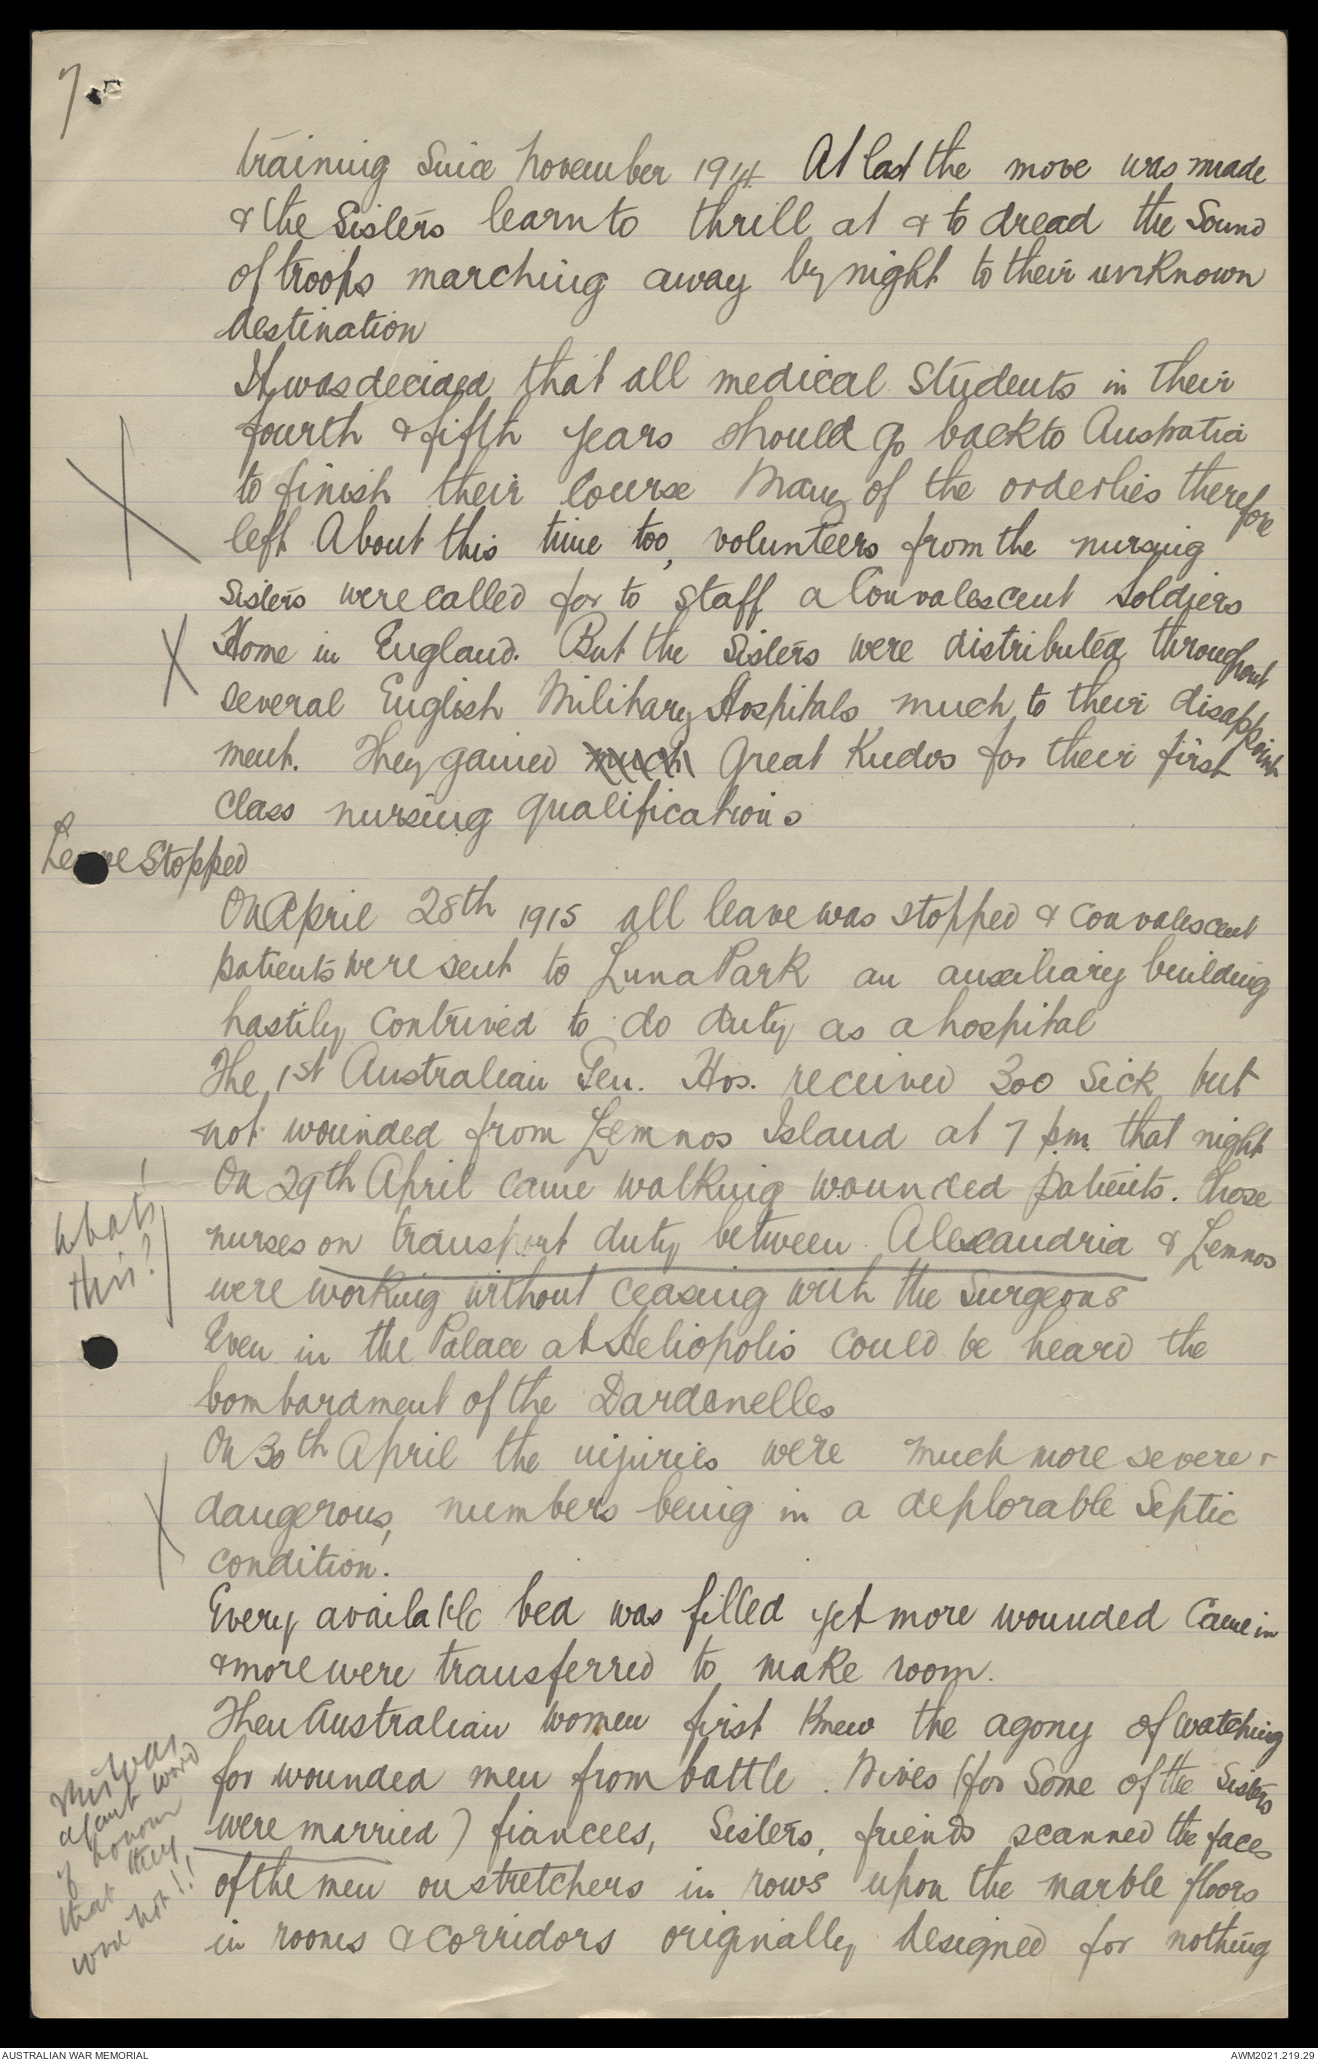 7.
training since November 1914. At last the move was made
& the Sisters learn to thrill at & to dread the sound
of troops marching away by night to their unknown
destination
It was decided that all medical students in their
fourth & fifth years should go back to Australia
to finish their course Many of the orderlies therefore
left About this time too, volunteers from the nursing
sisters were called for to staff a Convalescent Soldiers
Home in England. But the Sisters were distributed throughout
several English Military Hospitals much to their disappoint
ment. They gained much great Kudos for their first
class nursing qualifications
Leave Stopped
On April 28th 1915 all leave was stopped & convalescent
patients were sent to Luna Park an auxiliary building
hastily contrived to do duty as a hospital
The 1st Australian Gen. Hos. received 300 sick but
not wounded from Lemnos Island at 7 p.m. that night
On 29th April came walking wounded patients. Those
What's
this?
nurses on transport duty between Alexandria & Lemnos
were working without ceasing with the Surgeons
Even in the Palace at Heliopolis could be heard the
bombardment of the Dardanelles
On 30th April the injuries were much more severe &
dangerous, numbers being in a deplorable Septic
condition.
Every available bed was filled yet more wounded came in
& more were transferred to make room.
Then Australian women first knew the agony of watching
for wounded men from battle. Wives (for some of the Sisters
were married) fiancees, Sisters, friends scanned the faces
of the men on stretchers in rows upon the marble floors
in rooms & corridors originally designed for nothing
This was
word
of honour
that they
were not!!
AUSTRALIAN WAR MEMORIAL
AWM2021.219.29